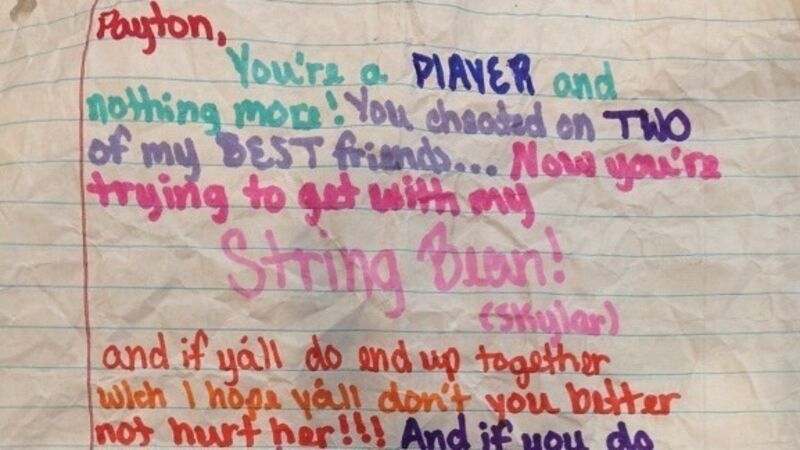 Payton,
You're a PlAYER and
nothing more! You cheated on TWO
of my BEST friends... Now you're
trying to get with my
String Bean!
(Skylar)
and if yáll do end up together
wich I hope yáll don't you better
not hurt her!!! And if you do